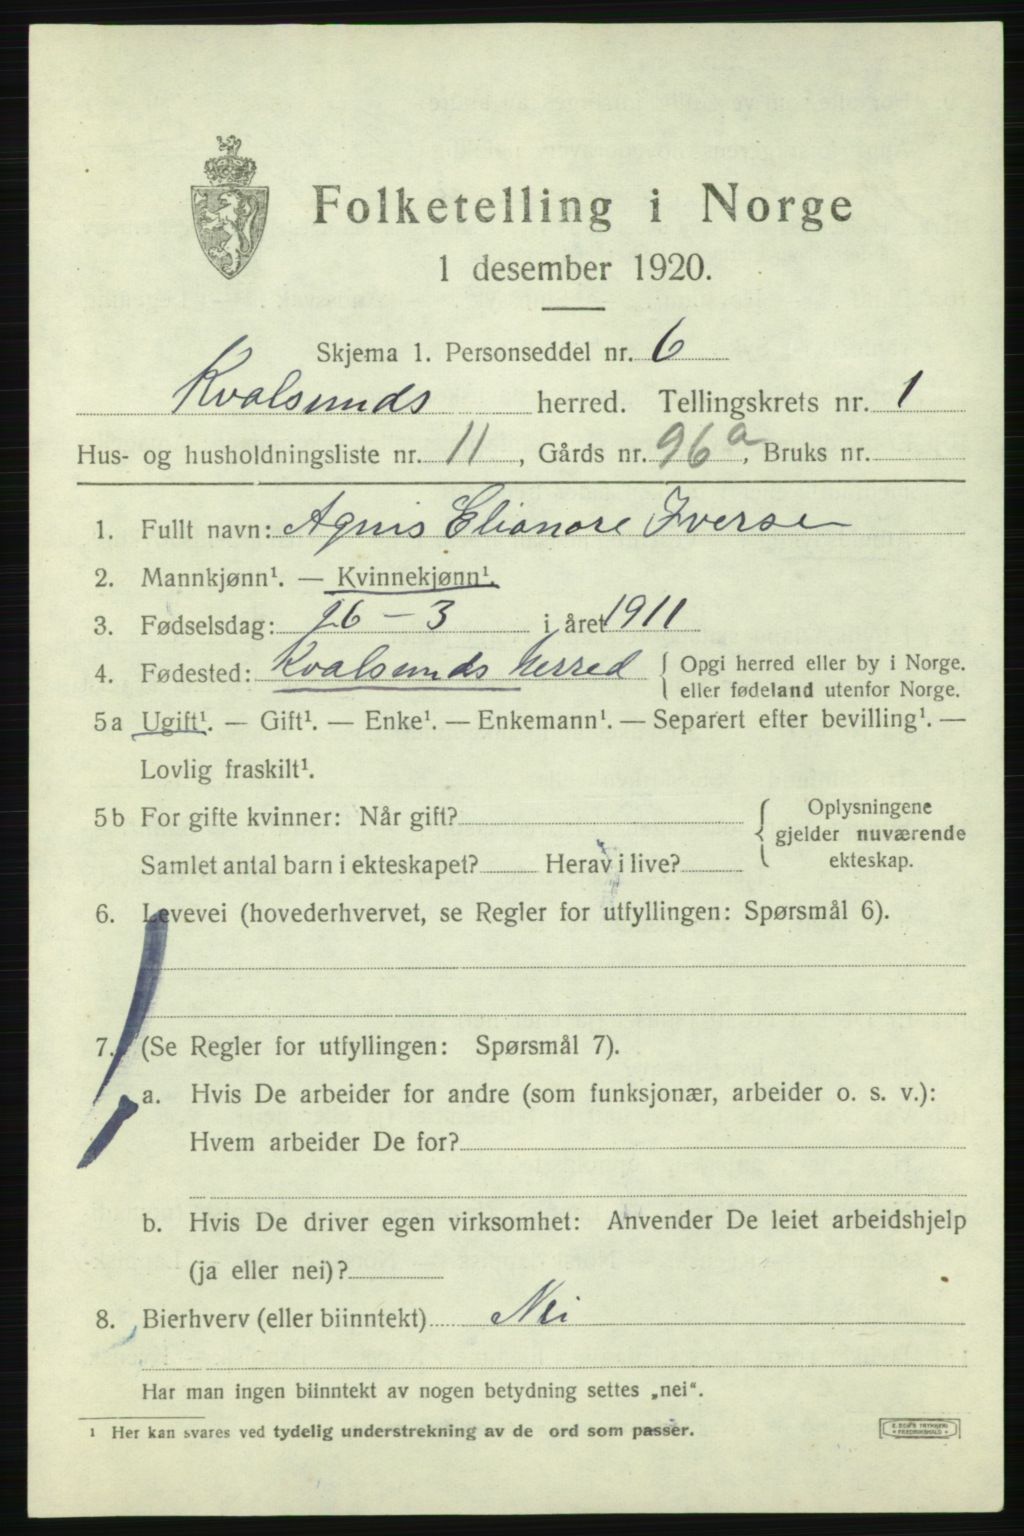 Folketelling i Norge
1 desember 1920.
Skjema 1. Personseddel nr. 6
Kvalsunds herred. Tellingskrets nr. 1
Hus- og husholdningsliste nr. 11, Gårds nr. 96a, Bruks nr.
1. Fullt navn: Agnis Elianore Iversen
2. Mannkjønn¹. — Kvinnekjønn¹.
3. Fødselsdag: 26 – 3 i året 1911
4. Fødested: Kvalsunds herred { Opgi herred eller by i Norge.
eller fødeland utenfor Norge.
5a Ugift¹. — Gift¹. — Enke¹. — Enkemann¹. — Separert efter bevilling¹. —
Lovlig fraskilt¹.
5b For gifte kvinner: Når gift? { Oplysningene
gjelder nuværende
Samlet antal barn i ekteskapet? Herav i live? ekteskap.
6. Levevei (hovederhvervet, se Regler for utfyllingen: Spørsmål 6).
7. (Se Regler for utfyllingen: Spørsmål 7).
a. Hvis De arbeider for andre (som funksjonær, arbeider o. s. v.):
Hvem arbeider De for?
b. Hvis De driver egen virksomhet: Anvender De leiet arbeidshjelp
(ja eller nei)?
8. Bierhverv (eller biinntekt) Nei
Har man ingen biinntekt av nogen betydning settes „nei“.
¹ Her kan svares ved tydelig understrekning av de ord som passer.